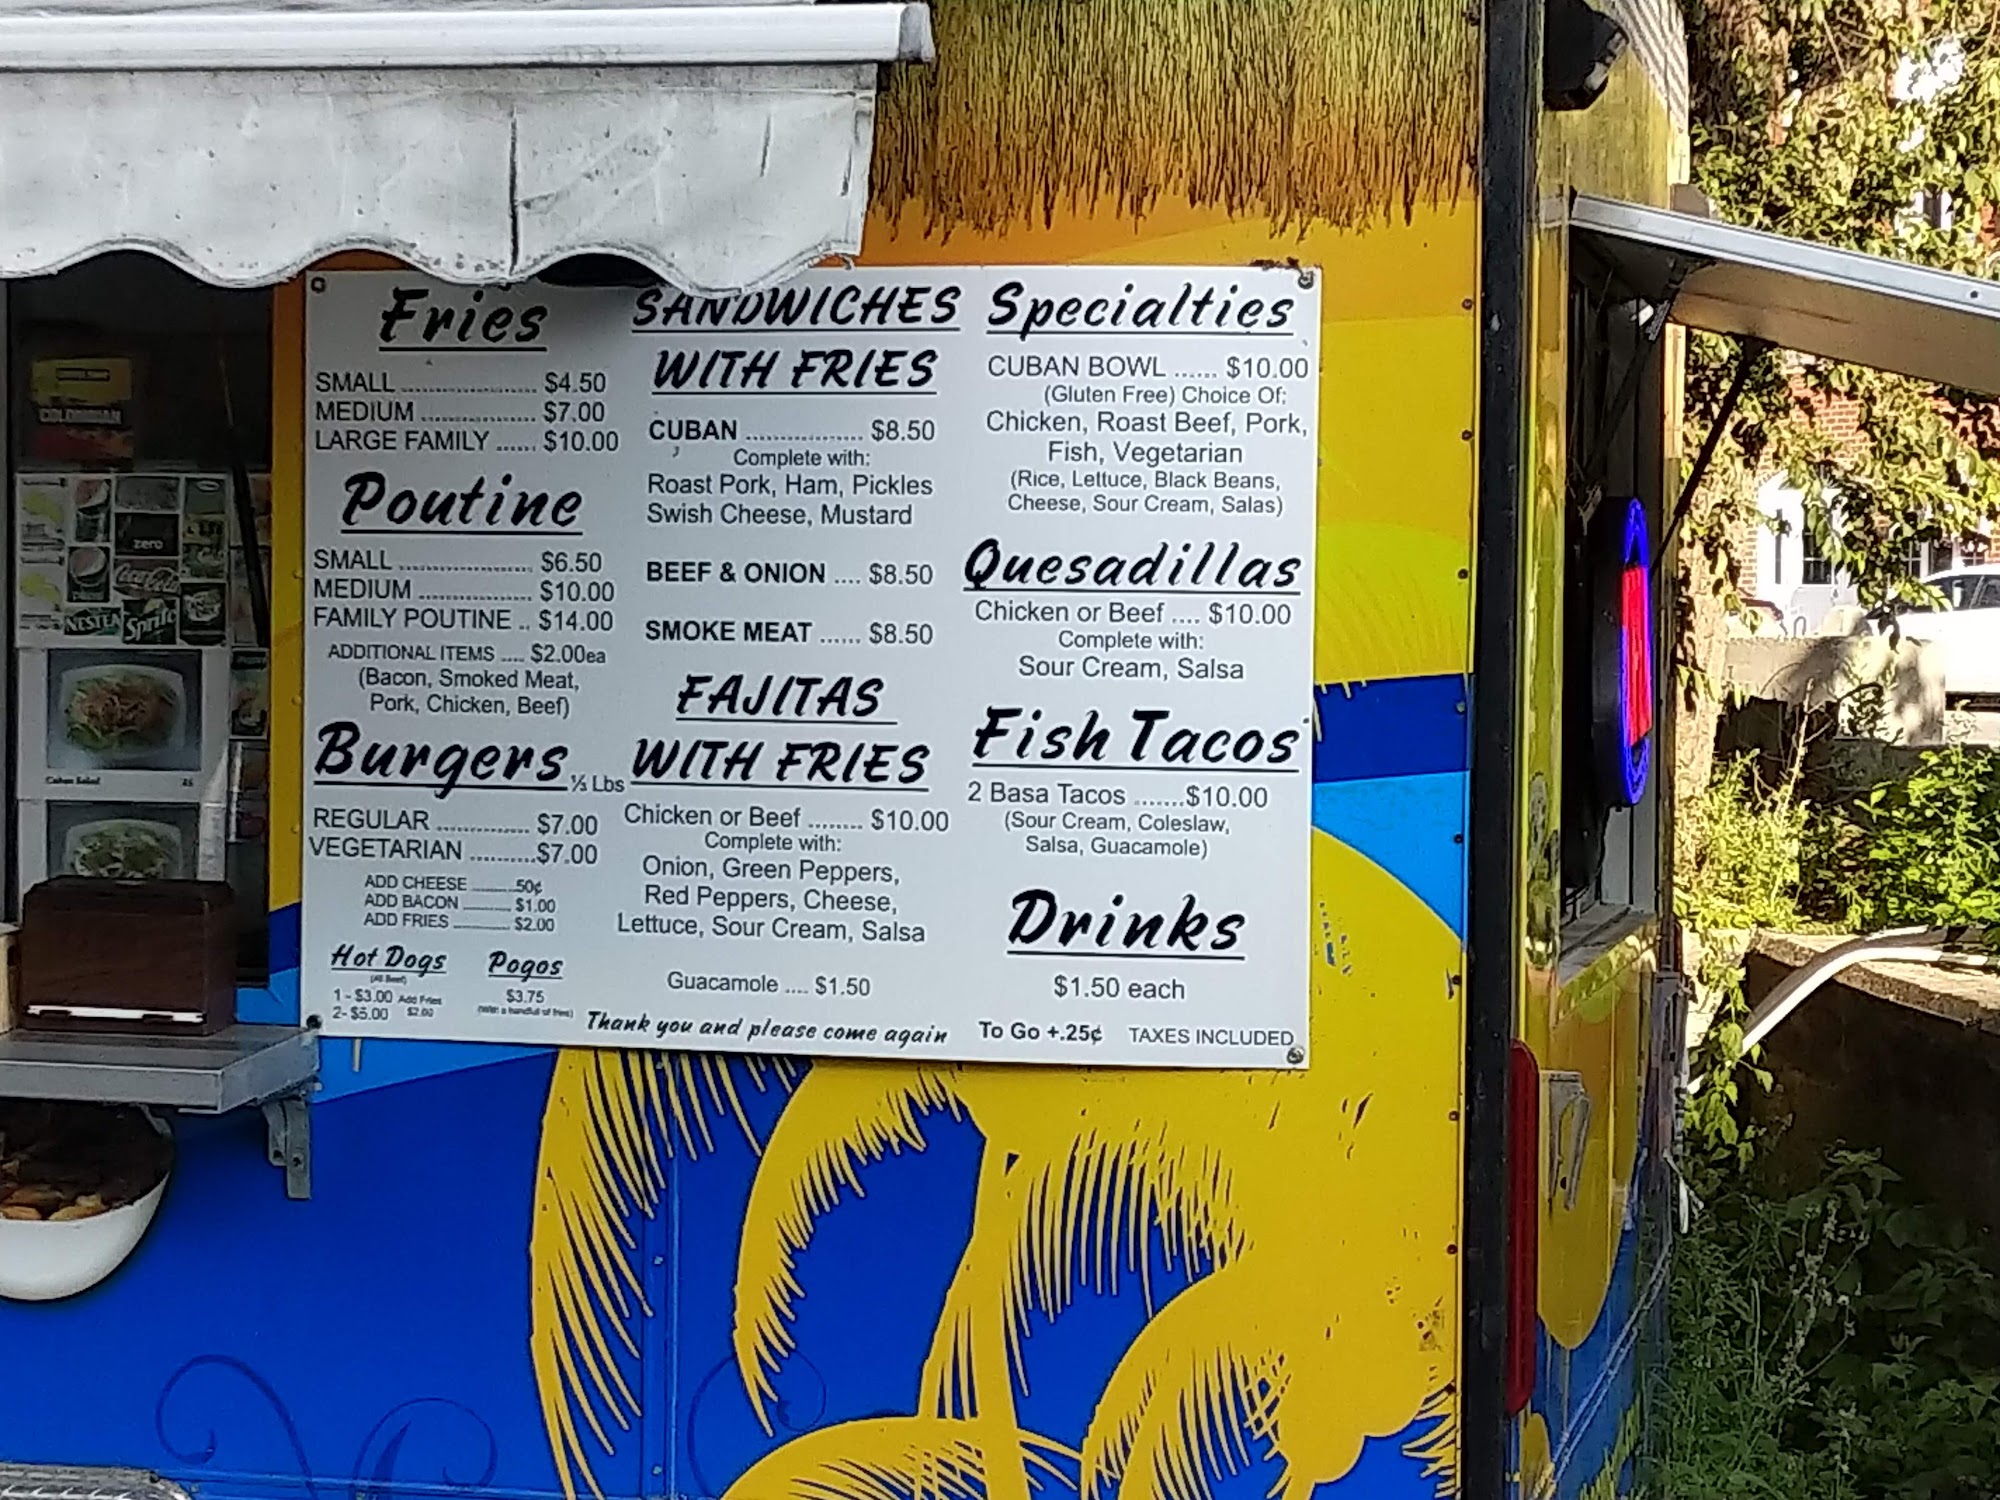 Fries
SMALL .................... $4.50
MEDIUM ................. $7.00
LARGE FAMILY ...... $10.00
Poutine
SMALL .................... $6.50
MEDIUM ................. $10.00
FAMILY POUTINE .. $14.00
ADDITIONAL ITEMS .... $2.00ea
(Bacon, Smoked Meat,
Pork, Chicken, Beef)
Burgers ⅓ Lbs
REGULAR .............. $7.00
VEGETARIAN ..........$7.00
ADD CHEESE ........ 50¢
ADD BACON ......... $1.00
ADD FRIES ........... $2.00
Hot Dogs
(All Beef)
1 - $3.00 Add Fries
2- $5.00 $2.00
Pogos
$3.75
SANDWICHES
WITH FRIES
CUBAN .................. $8.50
Complete with:
Roast Pork, Ham, Pickles
Swish Cheese, Mustard
BEEF & ONION .... $8.50
SMOKE MEAT ...... $8.50
FAJITAS
WITH FRIES
Chicken or Beef ........ $10.00
Complete with:
Onion, Green Peppers,
Red Peppers, Cheese,
Lettuce, Sour Cream, Salsa
Guacamole .... $1.50
Specialties
CUBAN BOWL ...... $10.00
(Gluten Free) Choice Of:
Chicken, Roast Beef, Pork,
Fish, Vegetarian
(Rice, Lettuce, Black Beans,
Cheese, Sour Cream, Salas)
Quesadillas
Chicken or Beef .... $10.00
Complete with:
Sour Cream, Salsa
Fish Tacos
2 Basa Tacos .......$10.00
(Sour Cream, Coleslaw,
Salsa, Guacamole)
Drinks
$1.50 each
Thank you and please come again
To Go +.25¢
TAXES INCLUDED
COLOMBIAN
zero
Coca-Cola
NESTEA
Sprite
Cuban Salad